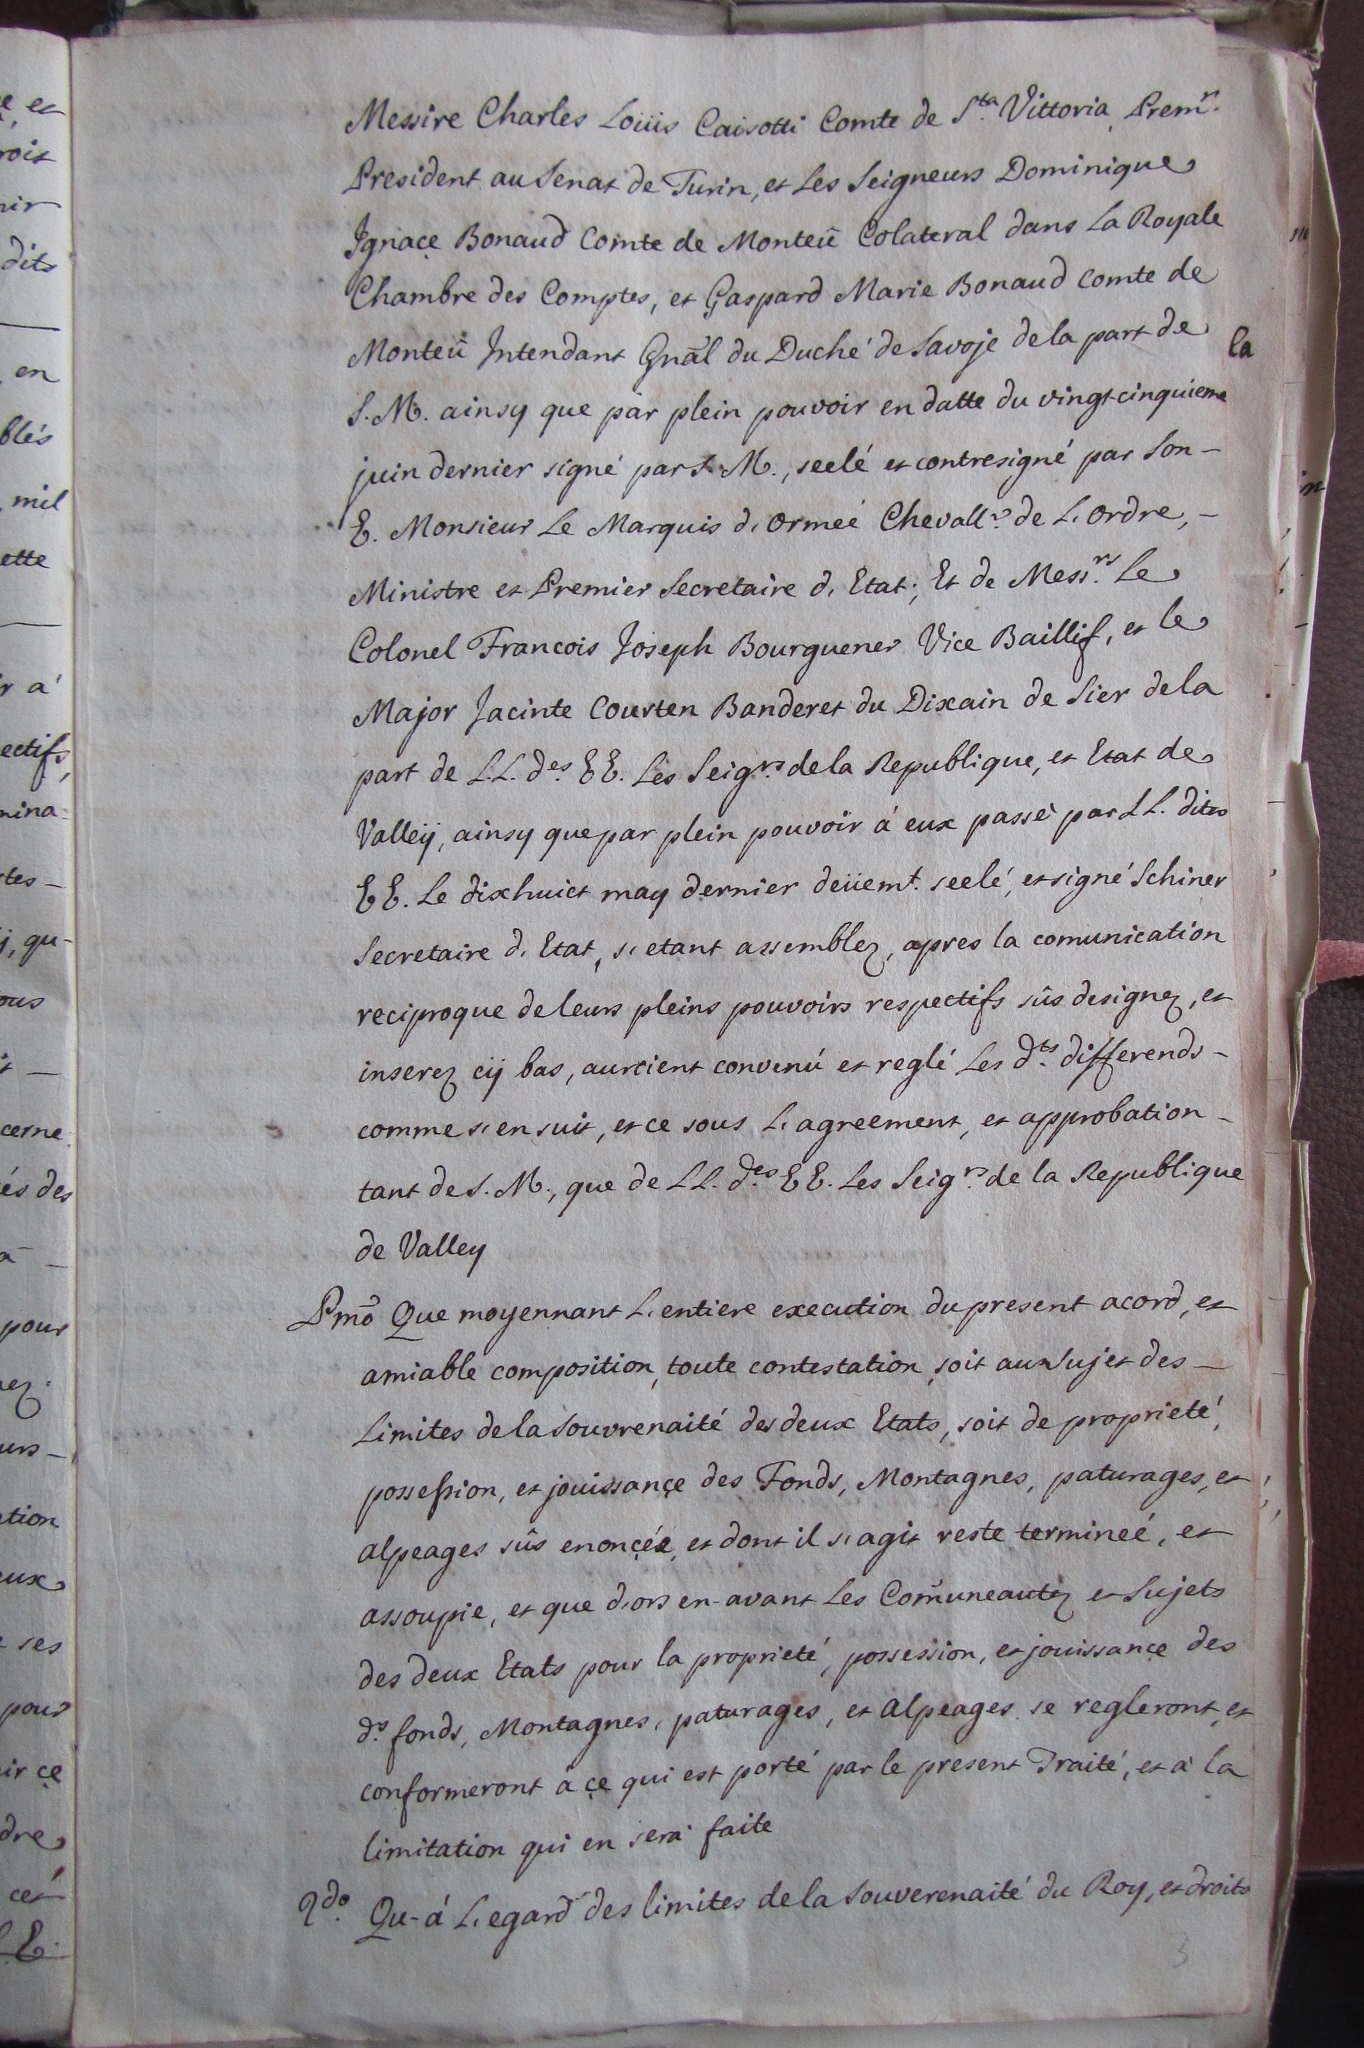 Messire Charles Loüis Caisotti Comte de S.ta Vittoria Prem.r
President au Senat de Turin, et Les Seigneurs Dominique
Ignaçe Bonaud Comte de Monteü Colateral dans La Royale
Chambre des Comptes, et Gaspard Marie Bonaud Comte de
Monteü Intendant Gnāl du Duché de Savoje de la part de
S. M. ainsy que par plein pouvoir en datte du vingt cinquieme
juin dernier signé par S. M., seelé et contresigné par Son -
E. Monsieur Le Marquis d'Ormeé Chevall.r de L'Ordre, -
Ministre et Premier Secretaire d'Etat; Et de Mess.rs Le
Colonel Francois Joseph Bourguener Vice Baillif, et le
Major Jacinte Courten Banderet du Dixain de Sier de la
part de L.L. d.es EE. Les Seig.rs de la Republique, et Etat de
Valleÿ, ainsy que par plein pouvoir á eux passé par LL. dites
EE. Le dixhuict may dernier deüem.t seelé, et signé Schiner
Secretaire d'Etat, s'etant assemblez, apres la comunication
reciproque de leurs pleins pouvoirs respectifs sûs designez, et
inserez cÿ bas, auroient convenú et reglé Les d.ts differends -
comme s'en suit, et ce sous L'agreement, et approbation -
tant de S. M., que de LL. d.es EE. Les Seig.rs de la Republique
de Valley
Pmō Que moyennant L'entiere execution du present acord, et
amiable composition, toute contestation, soit au Sujet des -
Limites de la Souvrenaité des deux Etats, soit de proprieté,
possession, et jouissançe des Fonds, Montagnes, paturages, et
alpeages sûs enonçés, et dont il s'agit reste termineé, et
assoupie, et que d'ors en-avant Les Com̄uneautez et Sujets
des deux Etats pour la proprieté, possession, et jouissançe des
d.s fonds, Montagnes, paturages, et alpeages se regleront, et
conformeront à çe qui est porté par le present Traité, et à la
limitation qui en sera faite
2.do Qu-á L'egard des limites de la Souverenaité du Roy, et droits
3
la